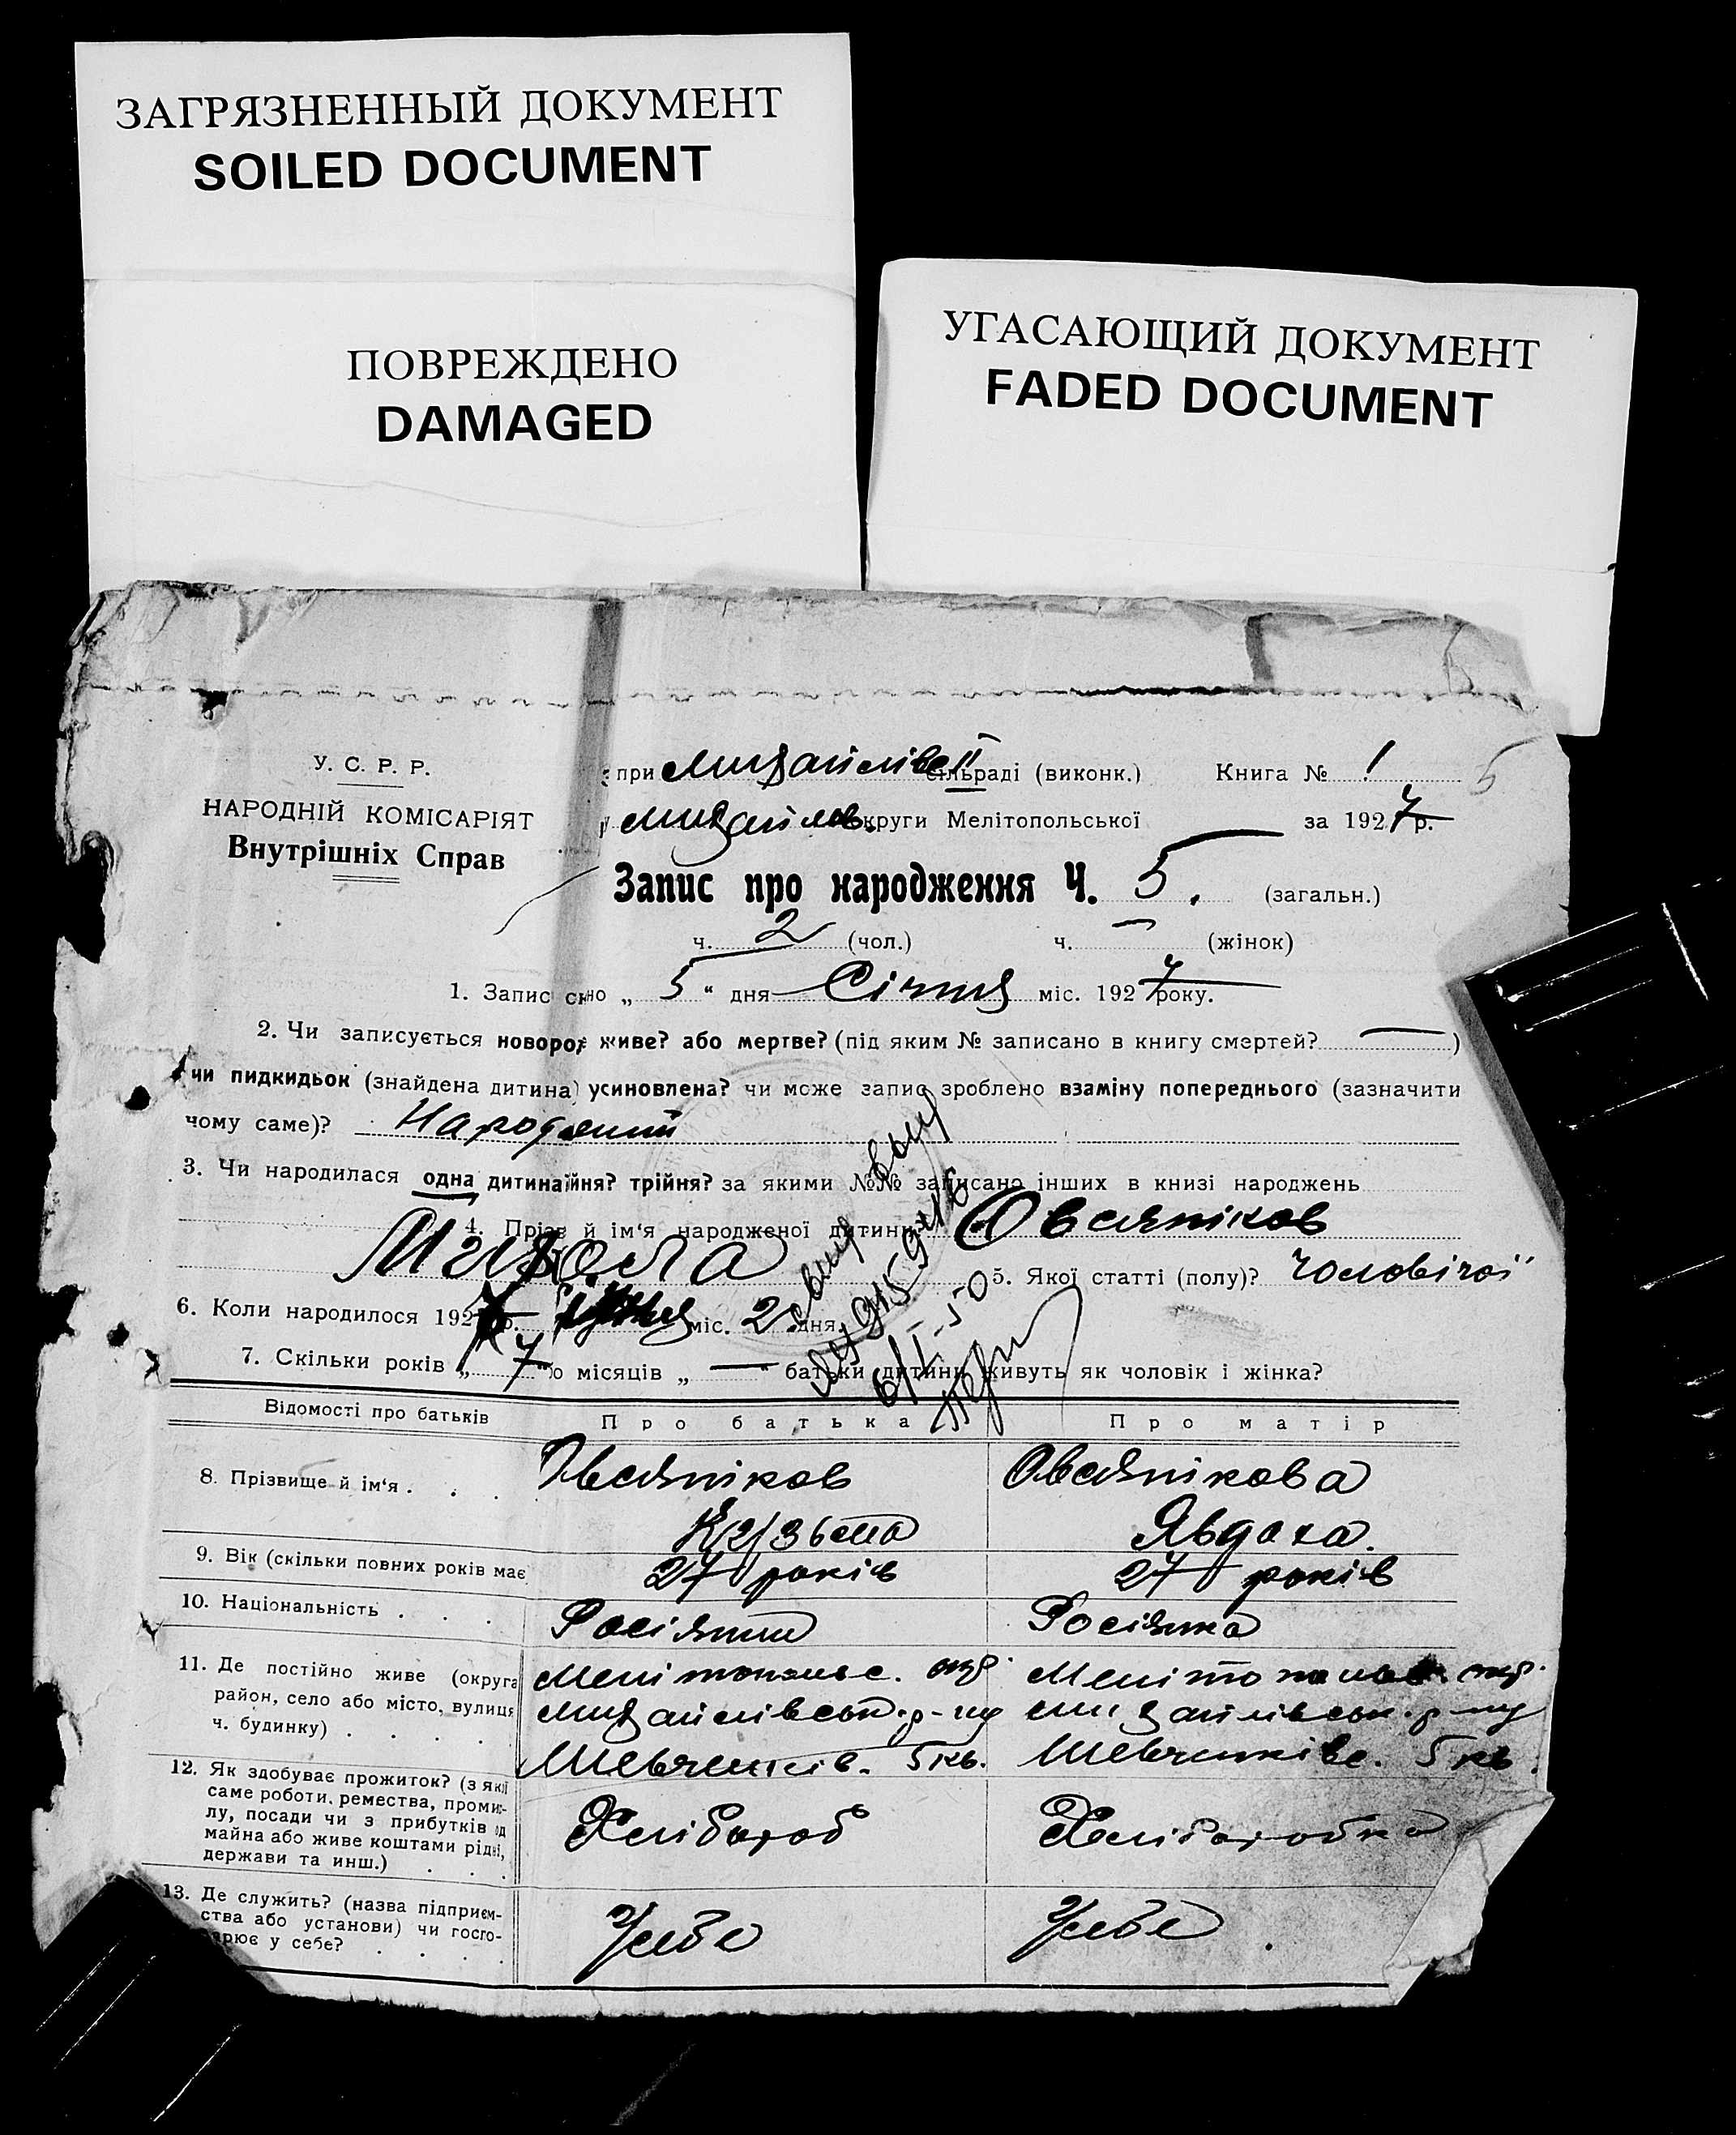 ЗАГРЯЗНЕННЫЙ ДОКУМЕНТ
SOILED DOCUMENT
ПОВРЕЖДЕНО
DAMAGED
УГАСАЮЩИЙ ДОКУМЕНТ
FADED DOCUMENT
У. С. Р. Р.
НАРОДНІЙ КОМІСАРІЯТ
Внутрішніх Справ
при Михайлівс II сільраді (виконк.) Книга № 1 5
Михайлов. округи Мелітопольської за 1927 р.
Запис про народження Ч. 5. (загальн.)
ч. 2 (чол.) ч. — (жінок)
1. Запис но „ 5 “ дня Січня міс. 1927 року.
2. Чи записується новорo живе? або мертве? (під яким № записано в книгу смертей? — )
чи пидкидьок (знайдена дитина) усиновлена? чи може запис зроблено взаміну попереднього (зазначити
чому саме)? Народжений
3. Чи народилася одна дитина йня? трійня? за якими №№ записано інших в книзі народжень
4. Прізв й ім'я народженої дитини? Овсяніков
Микола 5. Якої статті (полу)? чоловічої
6. Коли народилося 192 р. міс. 2 дня
7. Скільки років „ 7 “ о місяців „ — “ батьки дитини живуть як чоловік і жінка?
6/I-50
Відомості про батьків Про батька Про матір
8. Прізвище й ім'я . . . Овсяніков Овсянікова
Кузьма Явдоха.
9. Вік (скільки повних років має 27 років 27 років
10. Національність . . . Росіянин Росіянка
11. Де постійно живе (округа Мелітопольс. окр. Мелітопольс. окр.
район, село або місто, вулиця Михайлівськ. р-ну Михайлівськ. р-ну
ч. будинку) . . . . Шевченків. 5 кв. Шевченківс. 5 кв.
12. Як здобуває прожиток? (з якої
саме роботи, ремества, проми-
лу, посади чи з прибутків од
майна або живе коштами рідні,
держави та инш.) . . . Хлібороб Хліборобка
13. Де служить? (назва підприєм-
ства або установи) чи госпо-
арює у себе? . . . . У себе У себе.